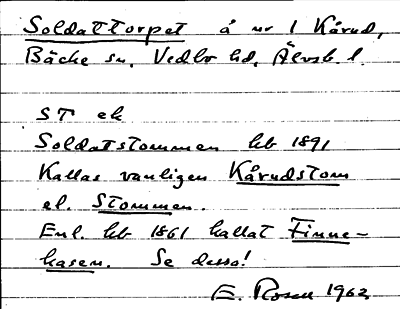 Soldattorpet å nr 1 Kårud,
Bäcke sn, Vedbo hd, Älvsb. l.
ST ek
Soldatstommen hb 1891
Kallas vanligen Kårudstom
el. Stommen.
Enl. hb 1861 kallat Finne-
hasen. Se dessa!
E. Rosell 1962